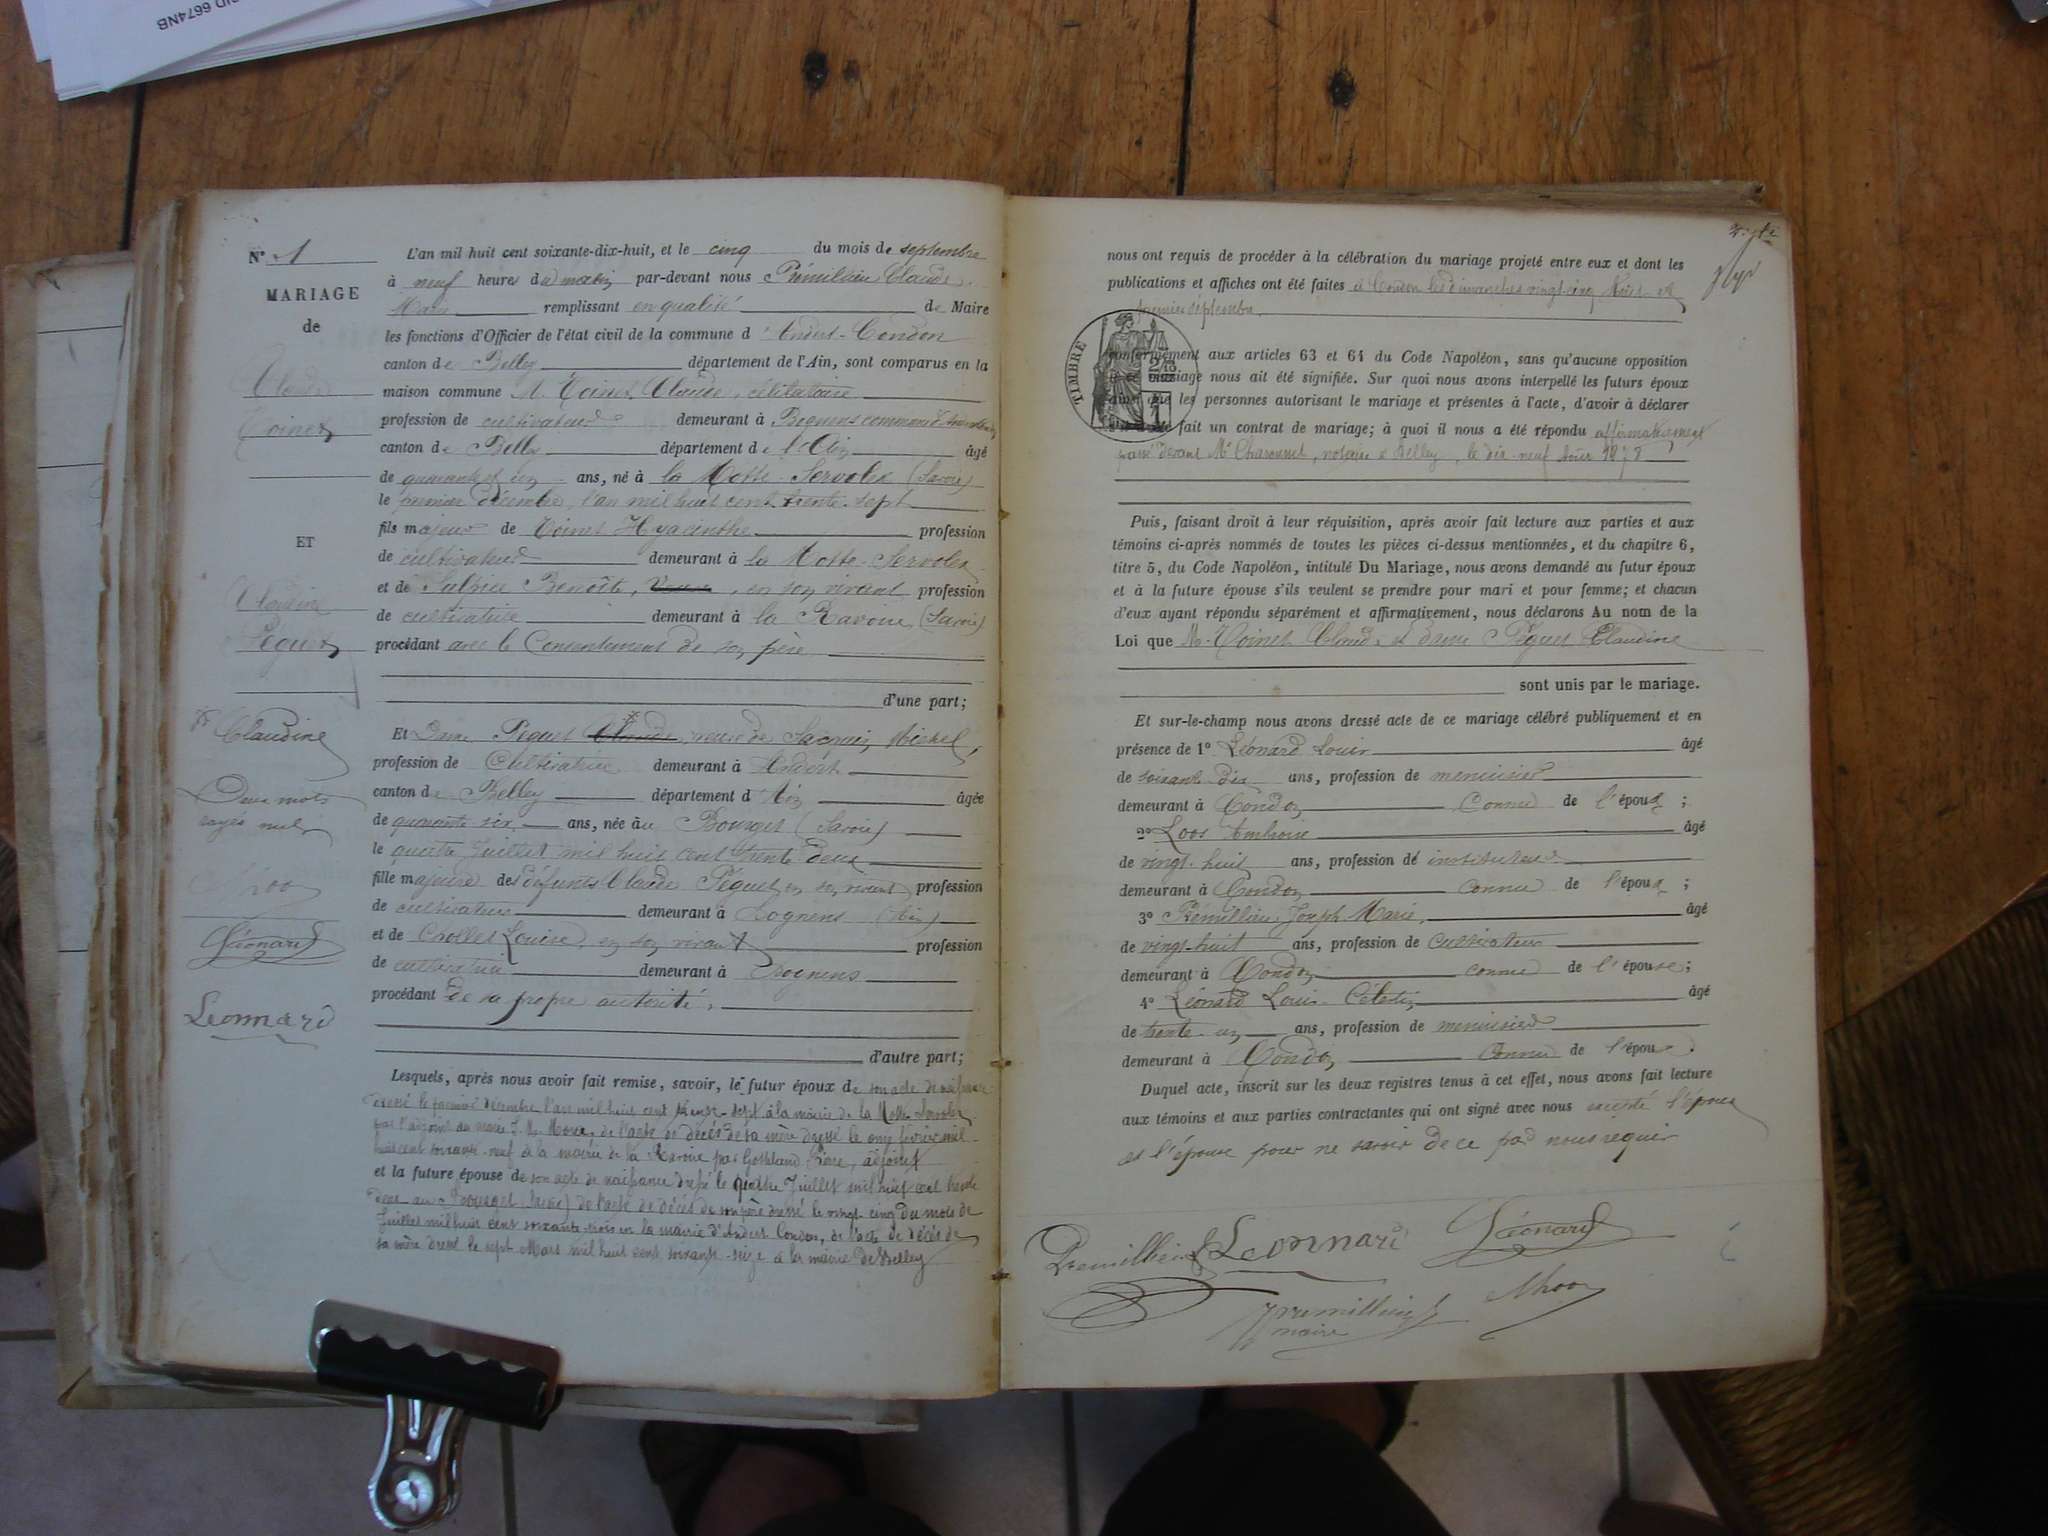 6674NB
N° 1
MARIAGE
de
Claude
Toinet
ET
Claudine
Péguet
* Claudine
Deux mots
rayés nuls
Léonard
Léonnard
L'an mil huit cent soixante-dix-huit, et le cinq du mois de septembre
à neuf heure du matin par-devant nous Prémillieu Claude,
Maire remplissant en qualité de Maire
les fonctions d'Officier de l'état civil de la commune d'Andert-Condon
canton de Belley département de l'Ain, sont comparus en la
maison commune M. Toinet Claude, célibataire
profession de cultivateur demeurant à Bognens commune d'Andert-Condon
canton de Belley département de l'Ain âgé
de quarante et un ans, né à la Motte-Servolex (Savoie)
le premier décembre, l'an mil huit cent trente-sept
fils majeur de Toinet Hyacinthe profession
de cultivateur demeurant à la Motte-Servolex
et de Benoîte, en son vivant profession
de cultivatrice demeurant à la Ravoire (Savoie)
procédant avec le Consentement de son père
d'une part;
Et Dame Péguet Claude, veuve de Jacquin, Michel,
profession de Cultivatrice demeurant à Andert
canton de Belley département d'Ain âgée
de quarante-six ans, née au Bourget (Savoie)
le quatre Juillet mil huit cent trente deux
fille majeure des défunts Claude Péguet en son vivant profession
de cultivateur demeurant à Bognens (Ain)
et de Crollet Louise, en son vivant profession
de cultivatrice demeurant à Bognens
procédant de sa propre autorité,
d'autre part;
Lesquels, après nous avoir fait remise, savoir, le futur époux de son acte de naissance
dressé le premier décembre l'an mil huit cent trente-sept à la mairie de la Motte-Servolex
par l'adjoint au maire de l'acte de décès de sa mère dressé le onze février mil
huit cent soixante-neuf à la mairie de la Ravoire par Gothland adjoint
et la future épouse de son acte de naissance dressé le quatre Juillet mil huit cent trente
deux au Bourget (Savoie) de l'acte de décès de son père dressé le vingt-cinq du mois de
Juillet mil huit cent soixante-trois en la mairie d'Andert-Condon, de l'acte de décès de
sa mère dressé le sept Mars mil huit cent soixante-seize à la mairie de Belley
nous ont requis de procéder à la célébration du mariage projeté entre eux et dont les
publications et affiches ont été faites à Condon les dimanches vingt-cinq Août et
premier septembre.
TIMBRE
conformément aux articles 63 et 64 du Code Napoléon, sans qu'aucune opposition
à ce mariage nous ait été signifiée. Sur quoi nous avons interpellé les futurs époux
ainsi que les personnes autorisant le mariage et présentes à l'acte, d'avoir à déclarer
s'il a été fait un contrat de mariage; à quoi il nous a été répondu affirmativement
passé devant Me notaire à Belley, le dix-neuf Août 1878
Puis, faisant droit à leur réquisition, après avoir fait lecture aux parties et aux
témoins ci-après nommés de toutes les pièces ci-dessus mentionnées, et du chapitre 6,
titre 5, du Code Napoléon, intitulé Du Mariage, nous avons demandé au futur époux
et à la future épouse s'ils veulent se prendre pour mari et pour femme; et chacun
d'eux ayant répondu séparément et affirmativement, nous déclarons Au nom de la
Loi que M. Toinet Claude et dame Péguet Claudine
sont unis par le mariage.
Et sur-le-champ nous avons dressé acte de ce mariage célébré publiquement et en
présence de 1° Léonard Louis âgé
de soixante dix ans, profession de menuisier
demeurant à Condon connu de l'époux;
2° Loos Ambroise âgé
de vingt-huit ans, profession de instituteur
demeurant à Condon connu de l'époux;
3° Prémillieu Joseph Marie, âgé
de vingt-huit ans, profession de cultivateur
demeurant à Condon connu de l'épouse;
4° Léonard Louis-Célestin âgé
de trente-un ans, profession de menuisier
demeurant à Condon connu de l'épouse.
Duquel acte, inscrit sur les deux registres tenus à cet effet, nous avons fait lecture
aux témoins et aux parties contractantes qui ont signé avec nous excepté l'époux
et l'épouse pour ne savoir de ce par nous requis
Premillieu Leonnard Léonard
Premillieu
maire